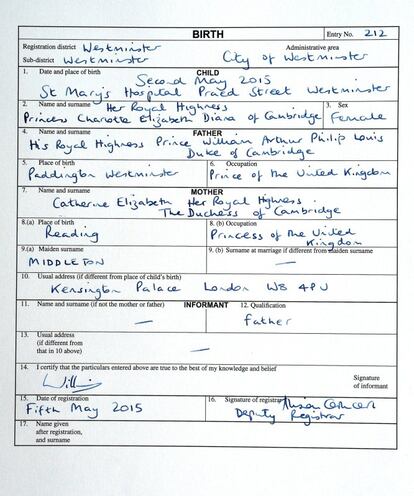 BIRTH Entry No. 212
Registration district Westminster Administrative area
Sub-district Westminster City of Westminster
1. Date and place of birth CHILD
Second May 2015
St Mary's Hospital Praed Street Westminster
2. Name and surname Her Royal Highness 3. Sex
Princess Charlotte Elizabeth Diana of Cambridge Female
4. Name and surname FATHER
His Royal Highness Prince William Arthur Philip Louis
Duke of Cambridge
5. Place of birth 6. Occupation
Paddington Westminster Prince of the United Kingdom
7. Name and surname MOTHER
Catherine Elizabeth Her Royal Highness
The Duchess of Cambridge
8.(a) Place of birth 8. (b) Occupation
Reading Princess of the United
Kingdom
9.(a) Maiden surname 9. (b) Surname at marriage if different from maiden surname
MIDDLETON —
10. Usual address (if different from place of child's birth)
Kensington Palace London W8 4PU
11. Name and surname (if not the mother or father) INFORMANT 12. Qualification
— Father
13. Usual address
(if different from
that in 10 above) —
14. I certify that the particulars entered above are true to the best of my knowledge and belief
William Signature
of informant
15. Date of registration 16. Signature of registrar
Fifth May 2015 Deputy Registrar
17. Name given
after registration,
and surname